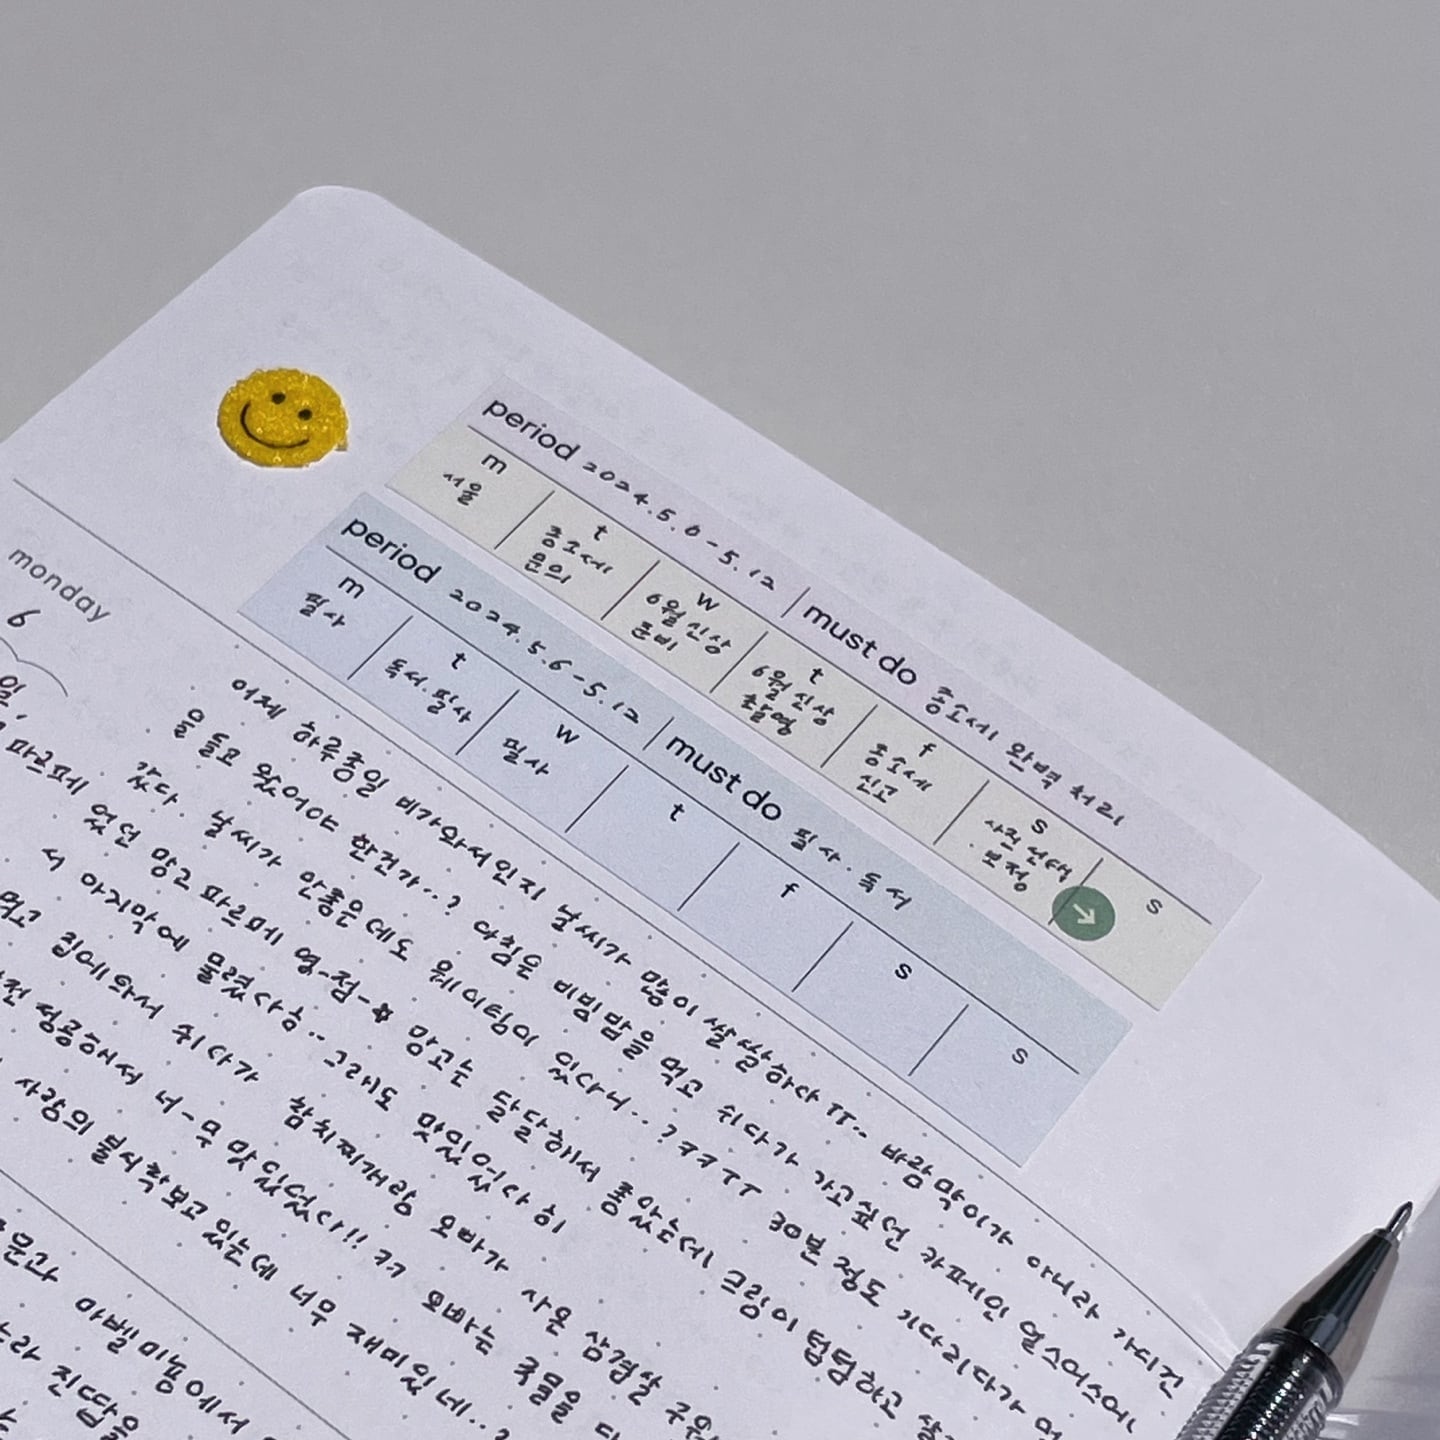 period 2024.5.6-5.12 | must do 종소세 완벽 처리
m t w t f s s
서울
종소세 문의
6월 신상 준비
6월 신상 촬영
종소세 신고
사진 선택 보정
period 2024.5.6-5.12 | must do 필사.독서
m t w t f s s
필사
독서.필사
필사
monday
6
어제 하루종일 비가와서인지 날씨가 많이 쌀쌀하다ㅠㅠ.. 바람막이가 아니라 가디건
을 들고 왔어야 한건가..? 아침은 비빔밥을 먹고 쉬다가 가고싶던 카페인 열스머스에
갔다 날씨가 안좋은데도 웨이팅이 있다니..?ㅋㅋㅜㅜ 30분 정도 기다리다가
파르페 였던 망고 파르페 영-접-☆ 망고는 달달해서 좋았는데 크림이 텁텁하고
서 마지막에 물렸사하.. 그래도 맛있었사히
먹고 집에와서 쉬사가 참치찌개랑 오빠가 사온 삼겹살
정종해서 너-무 맛있었다!! ㅋㅋ 오빠는 국물을
사랑의 불시착보고 있는데 너무 재미있네..?
마벨
진땁을